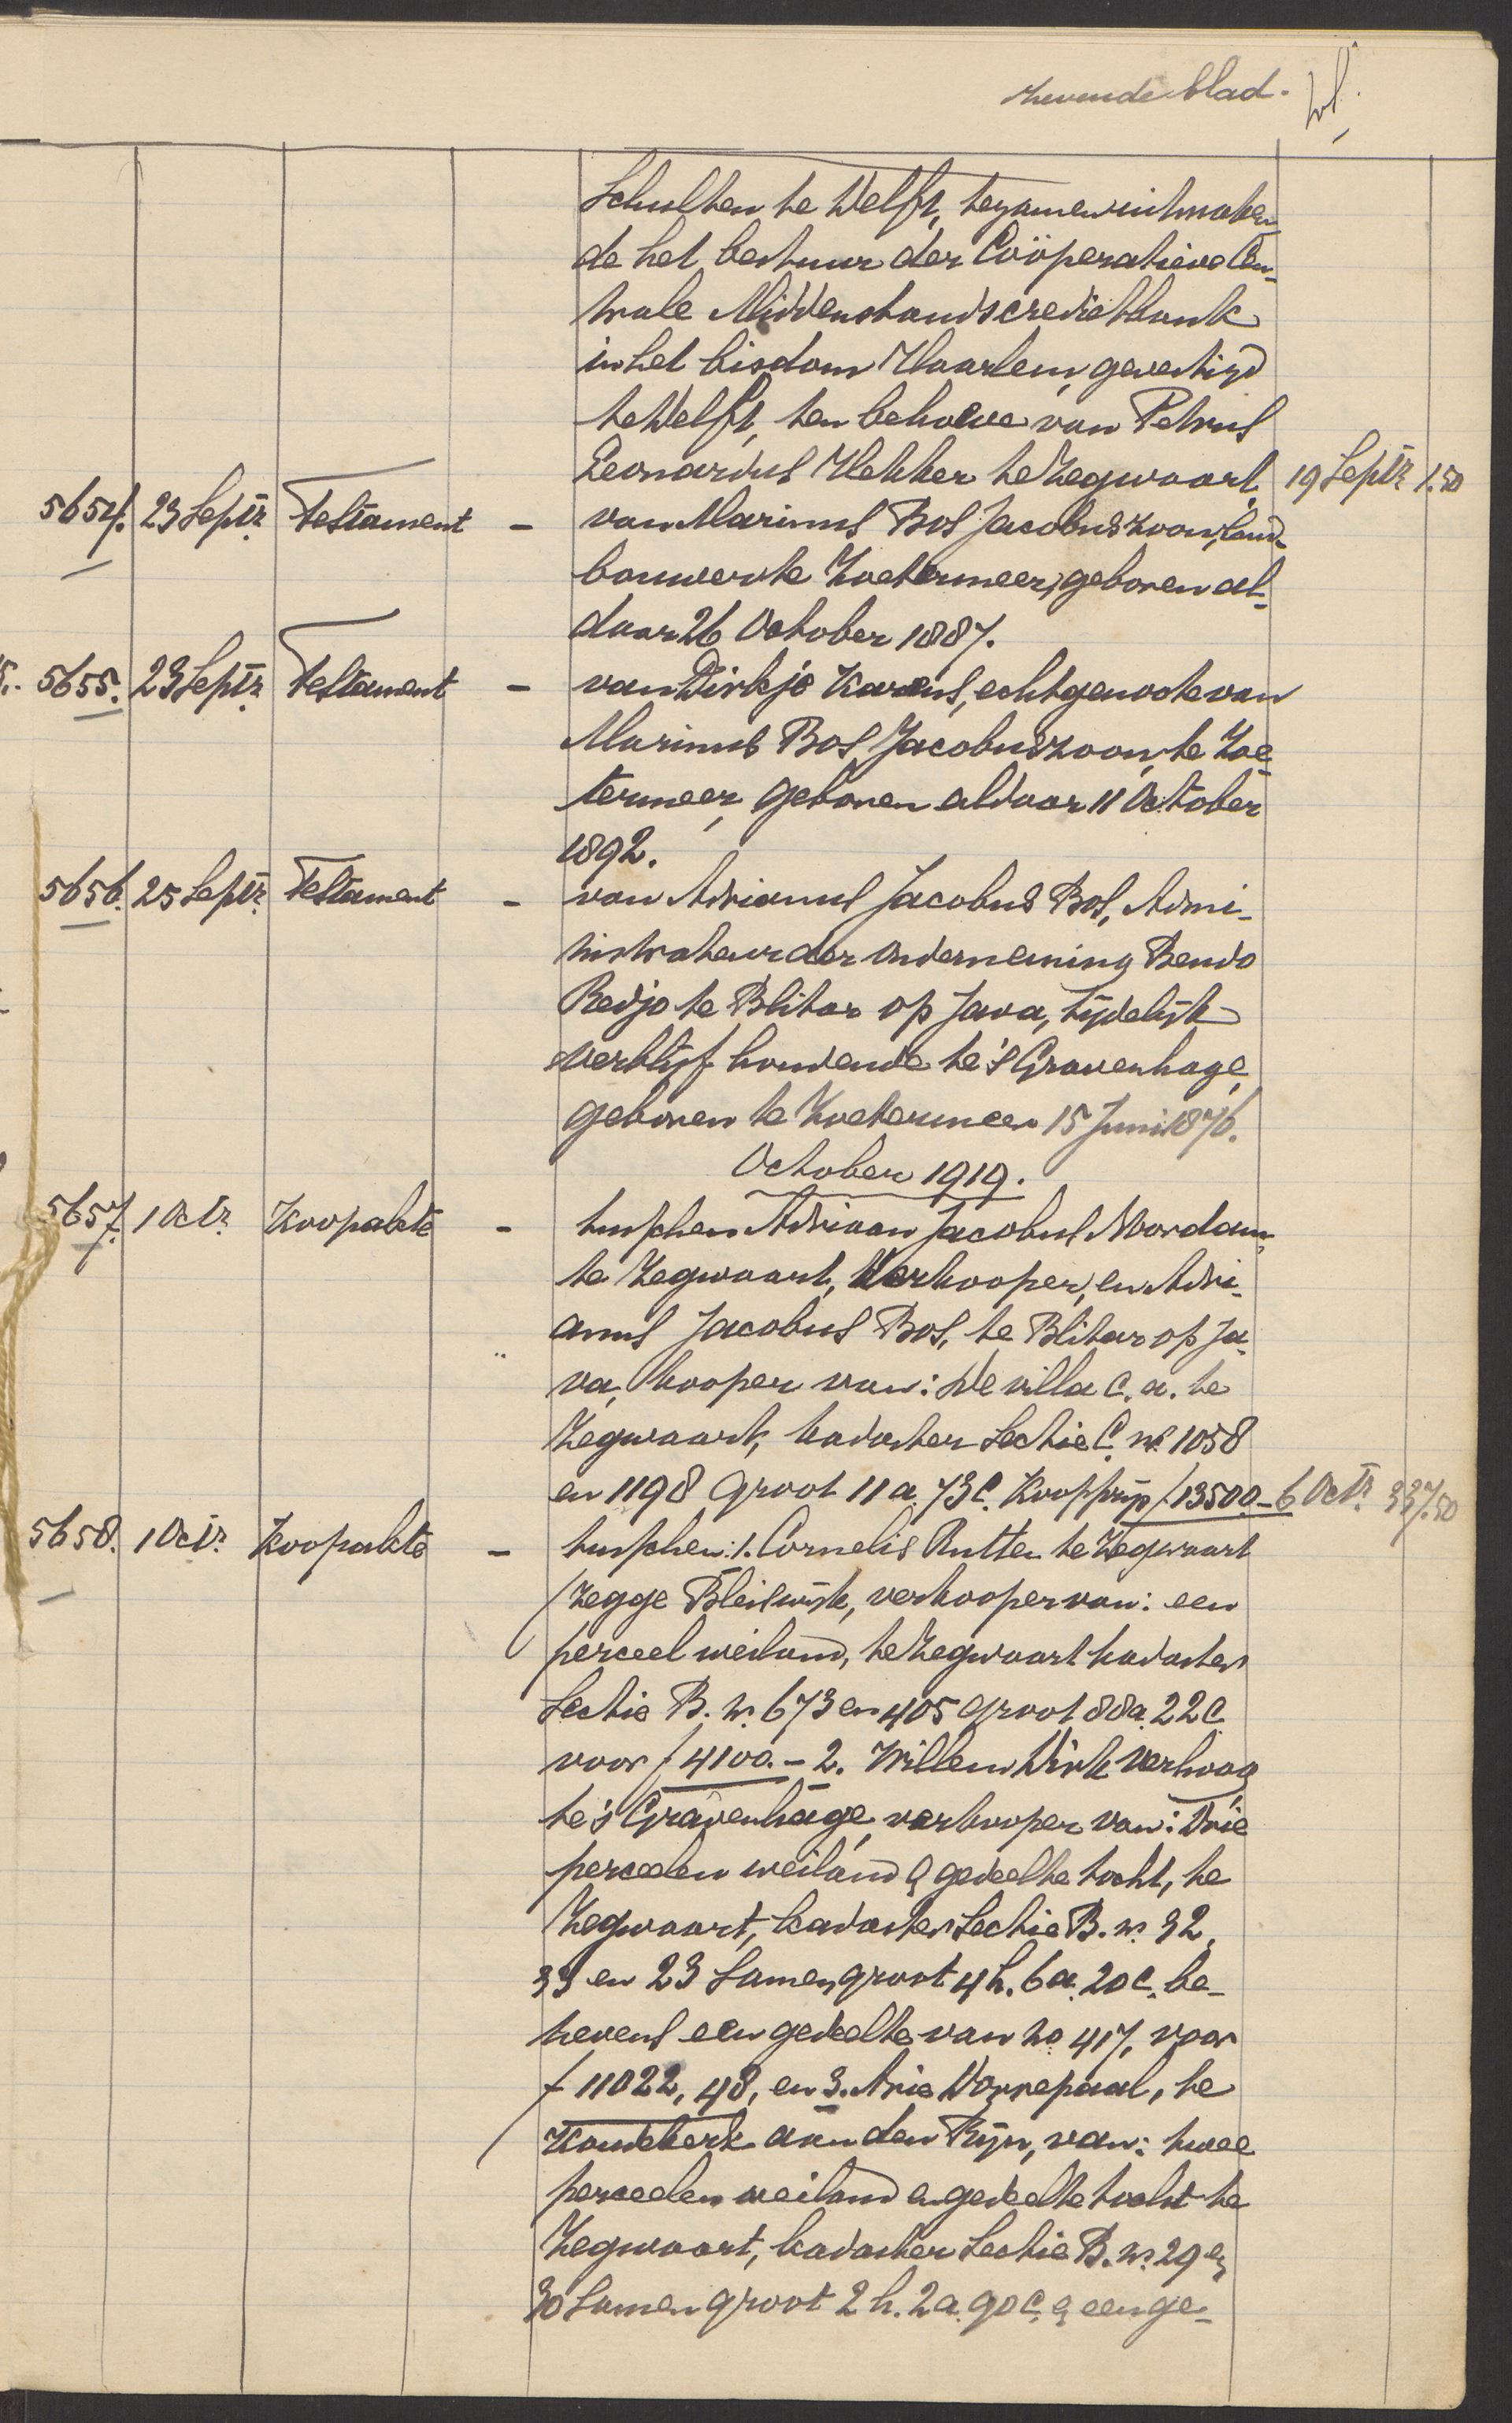 zevende blad.
Schulten te Delft, tezamen uitmaken-
de het bestuur der Coöperatieve Cen-
trale Middenstandscredietbank
in het bisdom Haarlem, gevestigd
te Delft, ten behoeve van Petrus
Leonardus Hekker te Zegwaart. 19 Septr 1.50
5654. 23 Septr. Testament - van Marinus Bos Jacobuszoon, land-
bouwer te Zoetermeer, geboren al-
daar 26 October 1887.
5655. 23 Septr. Testament - van Dirkje Karens, echtgenoote van
Marinus Bos Jacobuszoon, te Zoe-
termeer, geboren aldaar 11 October
1892.
5656. 25 Septr. Testament - van Adrianus Jacobus Bos, Admi-
nistrateur der onderneming Bendo
Redjo te Blitar op Java, tijdelijk
verblijf houdende te 's Gravenhage,
geboren te Zoetermeer 15 Juni 1876.
October 1919.
5657. 1 Octr. Koopakte - tusschen Adriaan Jacobus Noordam,
te Zegwaart, Verkooper, en Adri-
anus Jacobus Bos, te Blitar op Ja-
va, kooper van: De villa c.a. te
Zegwaart, kadaster Sectie C. no. 1058
en 1198 groot 11 a. 73 c. Koopprijs f 13500.- 6 Octr. 337.50
5658. 1 Octr. Koopakte - tusschen: 1. Cornelis Rutten te Zegwaart
(zegge Bleiswijk, verkooper van: een
perceel weiland, te Zegwaart kadaster
Sectie B. no. 673 en 405 groot 88 a. 22 c.
voor f 4100.- 2. Willem Dirk Verhoog
te 's Gravenhage, verkooper van: Drie
perceelen weiland & gedeelte tocht, te
Zegwaart, kadaster Sectie B. no. 32,
33 en 23 Samen groot 4 h. 6 a. 20 c. be-
nevens een gedeelte van no 417, voor
f 11022,48, en 3. Arie Dorrepaal, te
Koudekerk aan den Rijn, van: twee
perceelen weiland en gedeelte tocht te
Zegwaart, kadaster Sectie B. no. 29 en
30 Samen groot 2 h. 2 a. 90 c. & een ge-